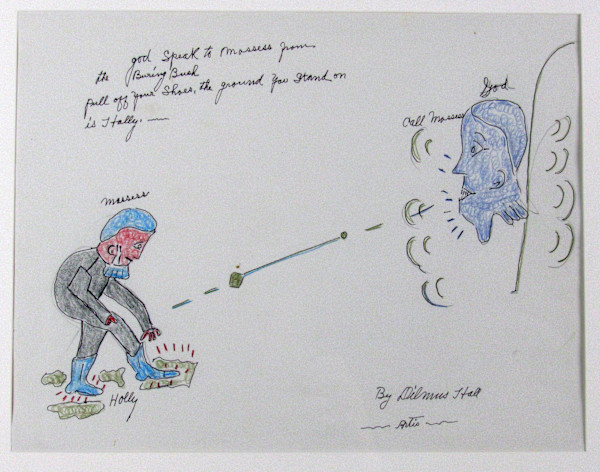 god Speak to Mossess from
the Buring Bush
pull off your Shoes, the ground You Stand on
is Hally.
God
Call Mossess
Mossess
Holly
By Dilmus Hall
Artis